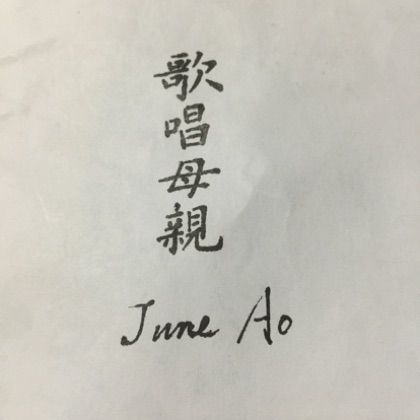 歌唱母親
June Ao